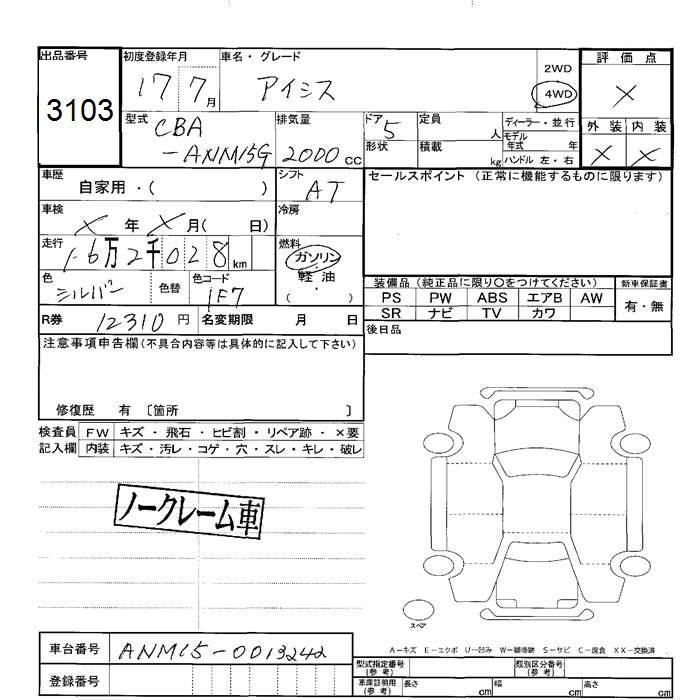 出品番号 初度登録年月 車名・グレード 2WD 評価点
3103 17 7月 アイシス 4WD ×
型式 排気量 ドア 定員 ディーラー・並行 外装 内装
CBA 5 人 モデル
-ANM15G 2000cc 形状 積載 kg 年式 年 × ×
ハンドル 左・右
車歴 シフト セールスポイント (正常に機能するものに限ります)
自家用・( ) AT
車検 冷房
×年×月( 日)
走行 燃料
16万2千028km ガソリン
色 色替 色コード 軽油
シルバー 1F7 ( ・ ) 装備品 (純正品に限り○をつけてください) 新車保証書
PS PW ABS エアB AW 有・無
R券 12310円 名変期限 月 日 SR ナビ TV カワ
後日品
注意事項申告欄(不具合内容等は具体的に記入して下さい)
修復歴 有 〔箇所 〕
検査員 FW キズ・飛石・ヒビ割・リペア跡・×要
記入欄 内装 キズ・汚レ・コゲ・穴・スレ・キレ・破レ
ノークレーム車
スペア
A-キズ E-エクボ U-凹み W-補修跡 S-サビ C-腐食 XX-交換済
車台番号 ANM15-0013242 型式指定番号 (参考) 類別区分番号 (参考)
登録番号 車庫証明用 (参考) 長さ cm 幅 cm 高さ cm